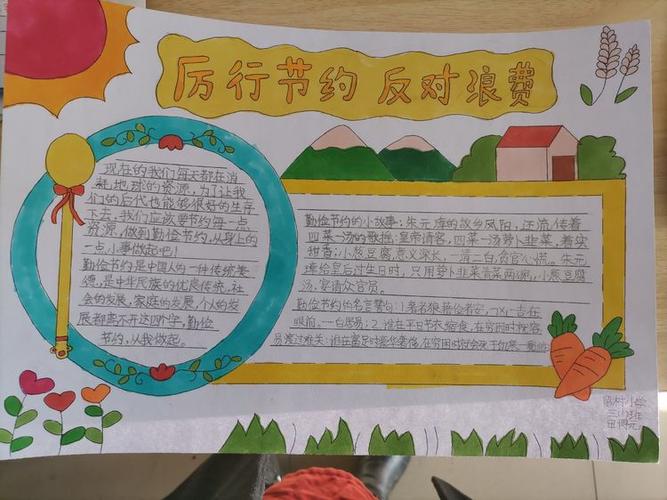 厉行节约 反对浪费
现在的我们每天都在消
耗地球的资源,为了让我
们的后代也能够很好的生存
下去,我们应该要节约每一点
资源,做到勤俭节约,从身上的
一点小事做起吧!
勤俭节约是中国人的一种传统美
德,是中华民族的优良传统,社
会的发展,家庭的发展,个人的发
展都离不开这四个字,勤俭
节约,从我做起。
勤俭节约的小故事:朱元璋的故乡凤阳,还流传着
四菜一汤的歌谣:皇帝请客,四菜一汤萝卜韭菜,着实
甜香;小葱豆腐,意义深长,一清二白,贪官心慌。朱元
璋给皇后过生日时,只用萝卜韭菜青菜两碗,小葱豆腐
汤,宴请众官员。
勤俭节约的名言警句:1
眼前,一白居易;2.谁在平日节衣缩食,在穷困时便容
易渡过难关;谁在富足时豪华奢侈,在穷困时就会死于饥寒。
小学
三